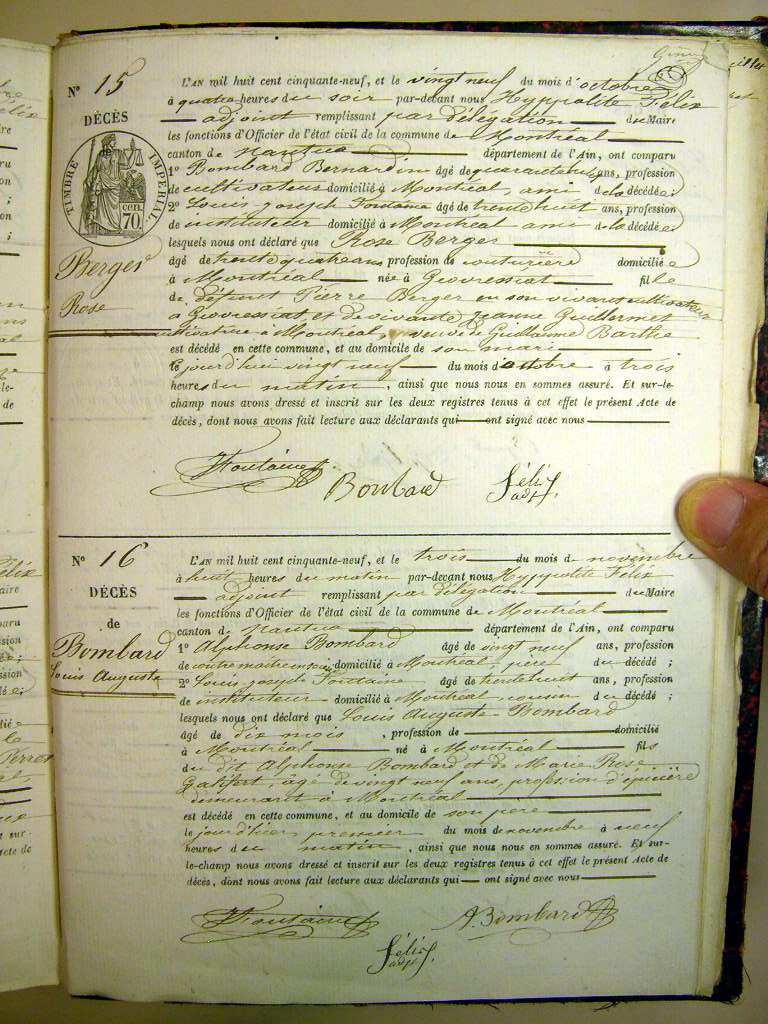 N° 15
DÉCÈS
TIMBRE IMPÉRIAL
70 cen.
Berger
Rose
L'AN mil huit cent cinquante-neuf, et le vingt neuf du mois d'octobre
à quatre heures du soir par-devant nous Hyppolite Félix
adjoint remplissant par délégation du Maire
les fonctions d'Officier de l'état civil de la commune de Montréal
canton de Nantua département de l'Ain, ont comparu
1° Bombard Bernardin âgé de quarante ans, profession
de cultivateur domicilié à Montréal, ami de la décédée;
2° Louis Joseph Fontaine âgé de trente huit ans, profession
de instituteur domicilié à Montréal ami de la décédée
lesquels nous ont déclaré que Rose Berger
âgé de trente quatre ans profession de couturière domiciliée
à Montréal née à Géovressiat fille
de défunt Pierre Berger en son vivant cultivateur
à Géovressiat et de vivante Jeanne Guillermet
cultivatrice à Montréal, veuve de Guillaume Barthe
est décédé en cette commune, et au domicile de son mari
le jourd'hui vingt neuf du mois d'octobre à trois
heures du matin, ainsi que nous nous en sommes assuré. Et sur-le-
champ nous avons dressé et inscrit sur les deux registres tenus à cet effet le présent Acte de
décès, dont nous avons fait lecture aux déclarants qui ont signé avec nous
Fontaine Bombard Félix
adjt
N° 16
DÉCÈS
de
Bombard
Louis Auguste
L'AN mil huit cent cinquante-neuf, et le trois du mois de novembre
à huit heures du matin par-devant nous Hyppolite Félix
adjoint remplissant par délégation du Maire
les fonctions d'Officier de l'état civil de la commune de Montréal
canton de Nantua département de l'Ain, ont comparu
1° Alphonse Bombard âgé de vingt neuf ans, profession
de domicilié à Montréal, père du décédé;
2° Louis Joseph Fontaine âgé de trente huit ans, profession
de instituteur domicilié à Montréal cousin du décédé;
lesquels nous ont déclaré que Louis Auguste Bombard
âgé de dix mois, profession de domicilié
à Montréal né à Montréal fils
du dit Alphonse Bombard et de Marie Rose
âgé de vingt neuf ans, profession d'épicière
demeurant à Montréal
est décédé en cette commune, et au domicile de son père
le jour d'hier premier du mois de novembre à neuf
heures du matin, ainsi que nous nous en sommes assuré. Et sur-
le-champ nous avons dressé et inscrit sur les deux registres tenus à cet effet le présent Acte de
décès, dont nous avons fait lecture aux déclarants qui ont signé avec nous
Fontaine A. Bombard
Félix
adjt